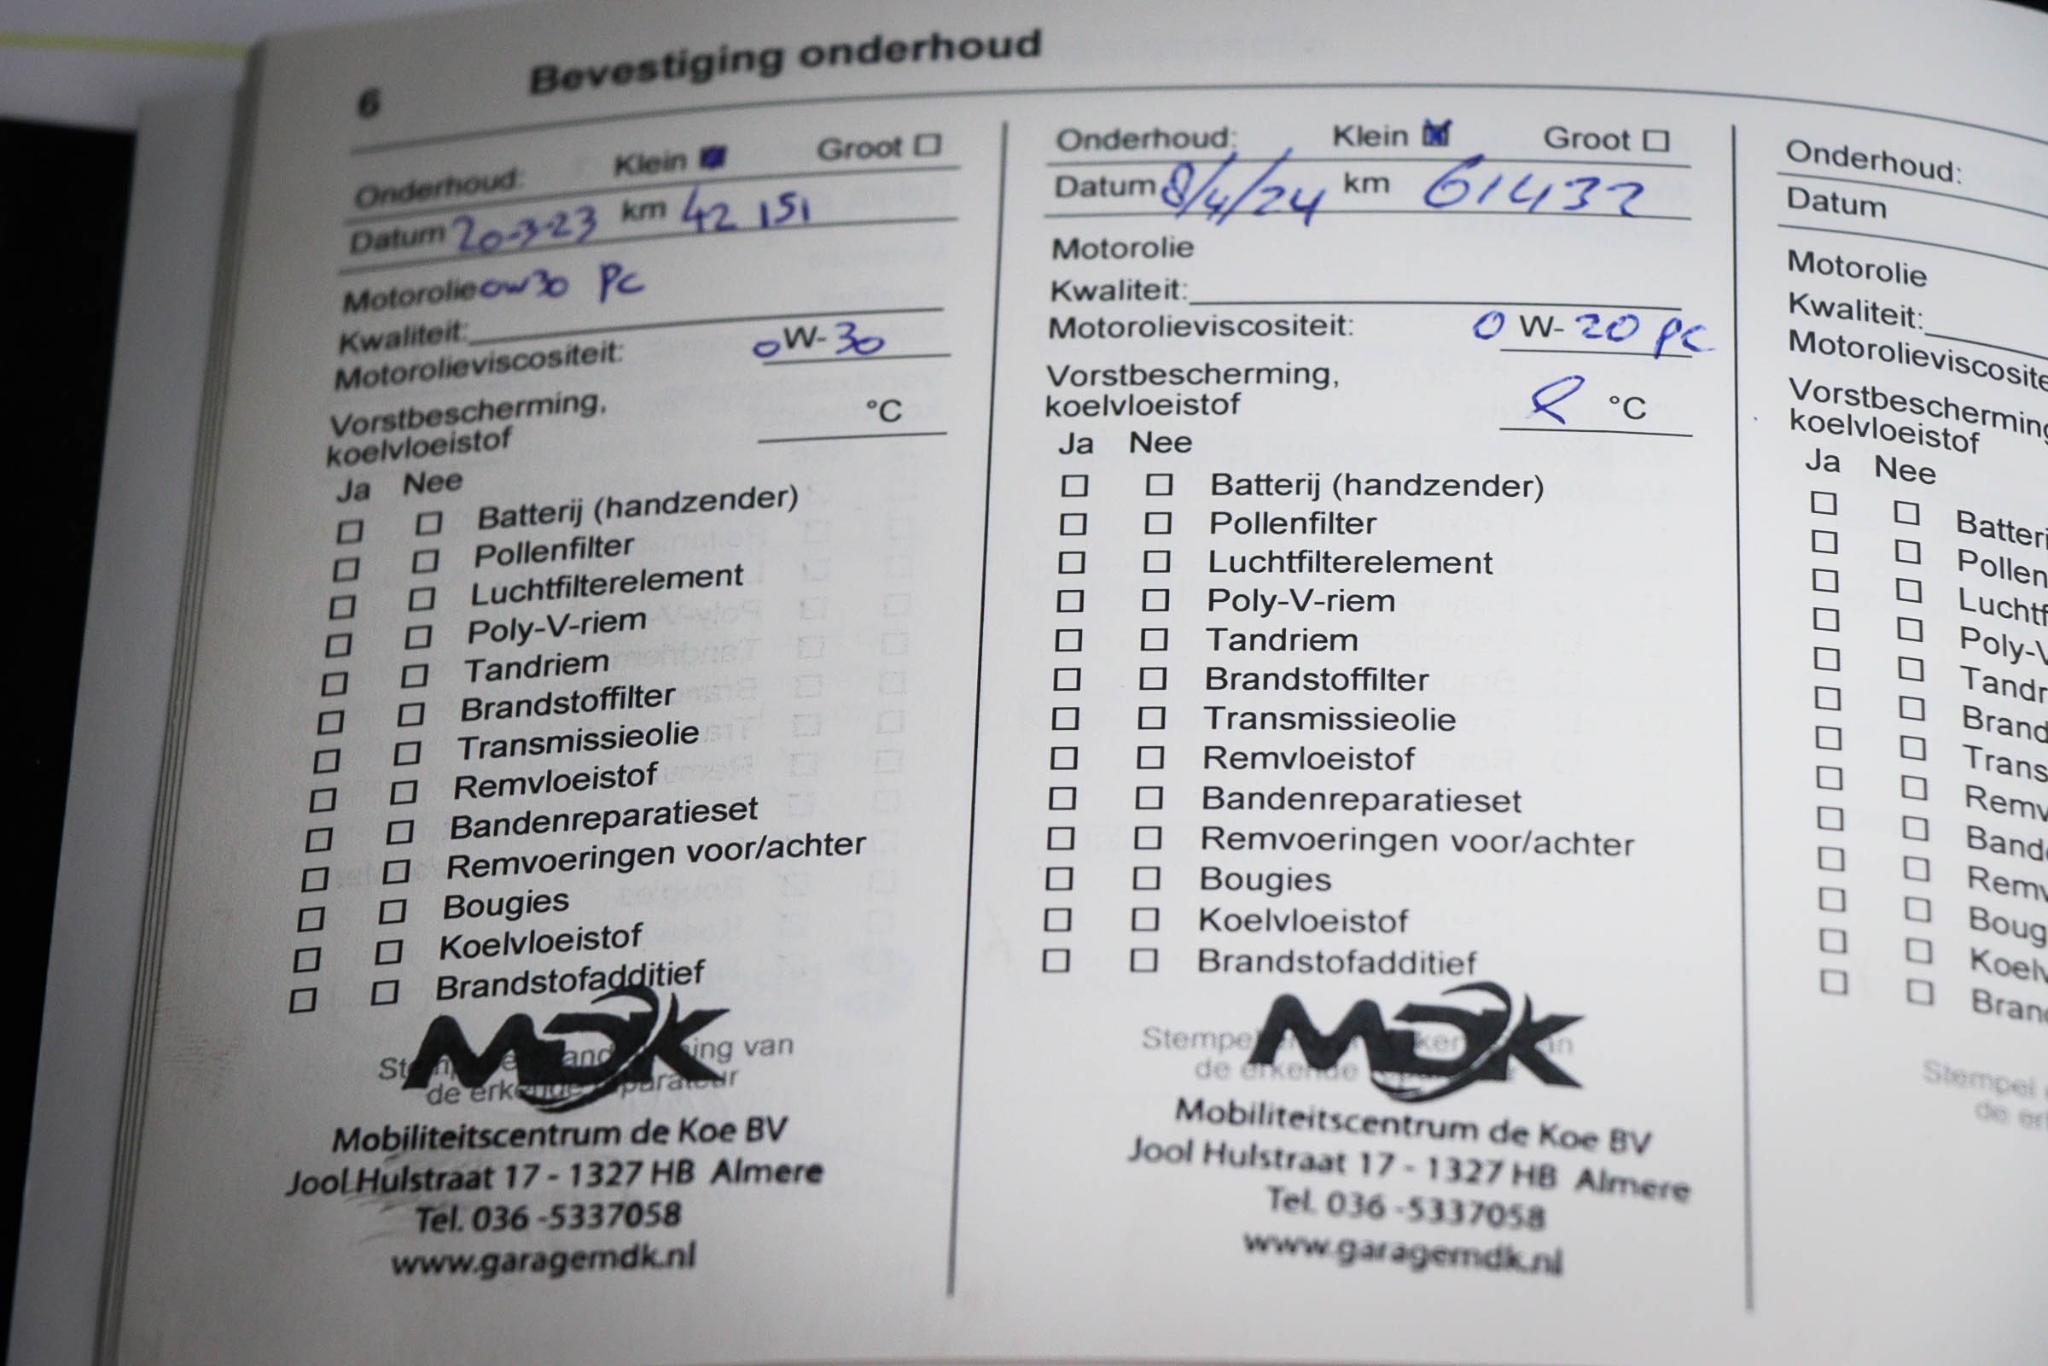 6 Bevestiging onderhoud
Onderhoud: Klein Groot
Datum 20-3-23 km 42 151
Motorolie 0w30 PC
Kwaliteit:
Motorolieviscositeit: 0 W- 30
Vorstbescherming,
koelvloeistof °C
Ja Nee
Batterij (handzender)
Pollenfilter
Luchtfilterelement
Poly-V-riem
Tandriem
Brandstoffilter
Transmissieolie
Remvloeistof
Bandenreparatieset
Remvoeringen voor/achter
Bougies
Koelvloeistof
Brandstofadditief
MDK
van
de
Mobiliteitscentrum de Koe BV
Jool Hulstraat 17 - 1327 HB Almere
Tel. 036 -5337058
www.garagemdk.nl
Onderhoud: Klein Groot
Datum 8/4/24 km 61432
Motorolie
Kwaliteit:
Motorolieviscositeit: 0 W- 20 PC
Vorstbescherming,
koelvloeistof °C
Ja Nee
Batterij (handzender)
Pollenfilter
Luchtfilterelement
Poly-V-riem
Tandriem
Brandstoffilter
Transmissieolie
Remvloeistof
Bandenreparatieset
Remvoeringen voor/achter
Bougies
Koelvloeistof
Brandstofadditief
MDK
de erkende
Mobiliteitscentrum de Koe BV
Jool Hulstraat 17 - 1327 HB Almere
Tel. 036 -5337058
www.garagemdk.nl
Onderhoud:
Datum
Motorolie
Kwaliteit:
Motorolieviscosite
Vorstbescherming
koelvloeistof
Ja Nee
Batteri
Pollen
Luchtf
Poly-V
Tandr
Brand
Trans
Remv
Band
Remv
Boug
Koelv
Bran
Stempel
de er